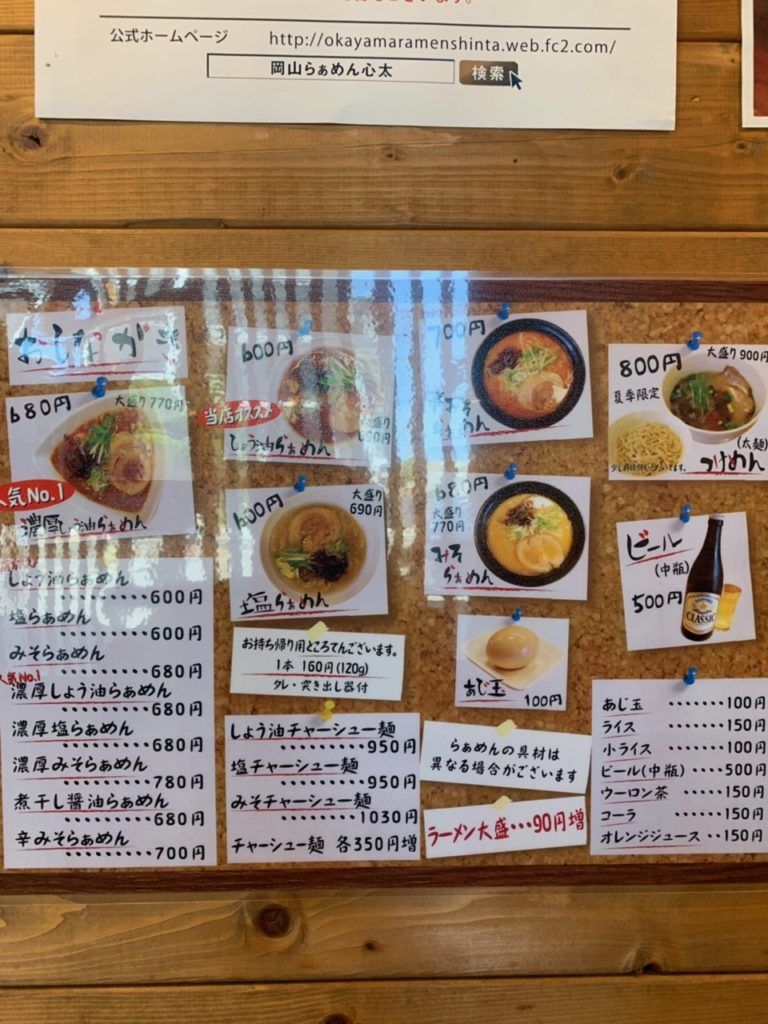 公式ホームページ http://okayamaramenshinta.web.fc2.com/
岡山らぁめん心太 検索
おしながき
680円 大盛り770円
人気No.1
濃厚しょう油らぁめん
600円
当店オススメ
大盛り
690円
しょう油らぁめん
600円 大盛り
690円
塩らぁめん
700円
辛みそ
らぁめん
680円
大盛り
770円
みそ
らぁめん
800円 大盛り900円
夏季限定
(太麺)
つけめん
ビール
(中瓶)
500円
CLASSIC
あじ玉 100円
お持ち帰り用ところてんございます。
1本 160円(120g)
タレ・突き出し器付
しょう油らぁめん
・・・・・・・・・600円
塩らぁめん
・・・・・・・・・600円
みそらぁめん
・・・・・・・・・680円
人気No.1
濃厚しょう油らぁめん
・・・・・・・・・680円
濃厚塩らぁめん
・・・・・・・・・680円
濃厚みそらぁめん
・・・・・・・・・780円
煮干し醤油らぁめん
・・・・・・・・・680円
辛みそらぁめん
・・・・・・・・・700円
しょう油チャーシュー麺
・・・・・・・・・950円
塩チャーシュー麺
・・・・・・・・・950円
みそチャーシュー麺
・・・・・・・・1030円
チャーシュー麺 各350円増
らぁめんの具材は
異なる場合がございます
ラーメン大盛・・・90円増
あじ玉 ・・・・・・・100円
ライス ・・・・・・・150円
小ライス ・・・・・・100円
ビール(中瓶) ・・・・・500円
ウーロン茶 ・・・・・150円
コーラ ・・・・・・・150円
オレンジジュース ・・150円